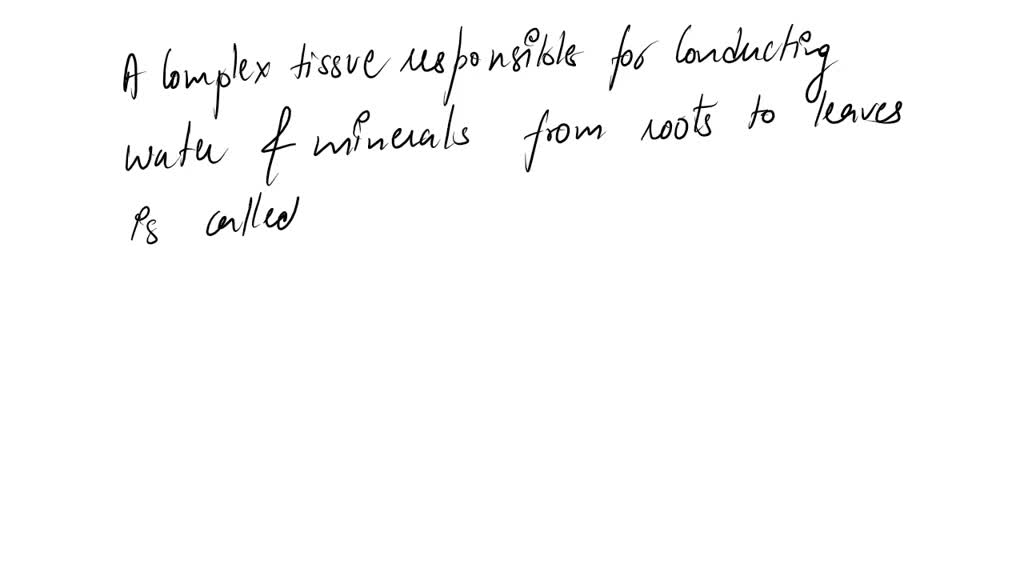 A complex tissue responsible for conducting
water & minerals from roots to leaves
is called